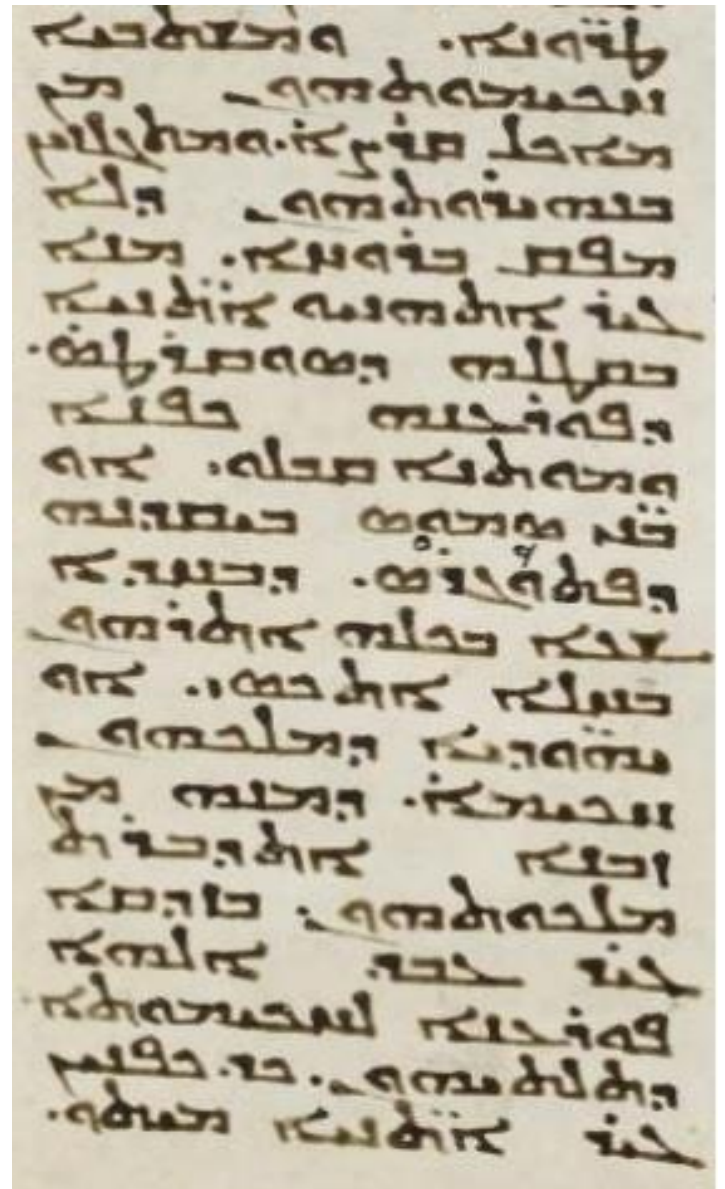 ܛܪ̈ܘܢܐ. ܘܡܫܬܒܝܐ
ܚܟܝܡܘܬܗܘܢ ܡܢ
ܡܐܟܠ ܩܪ̈ܨܐ. ܘܡܬܛܠܡܝܢ
ܒܢܗܝܪܘܬܗܘܢ ܕܠܐ
ܡܦܩ ܒܪܘܚܐ. ܡܢܐ
ܓܝܪ ܐܬܗܢܝܘ ܐܬܢ̈ܝܐ
ܒܩܛܠܗ ܕܣܘܩܪܛܝܣ.
ܕܦܘܪܥܢܗ ܟܦܢܐ
ܘܡܘܬܢܐ ܩܒܠܘ. ܐܘ
ܒܢ̈ܝ ܣܡܘܣ ܒܝܩܕܢܗ
ܕܦܬܘܓܪܣ. ܕܒܚܕܐ
ܫܥܐ ܟܠܗ ܐܬܪܗܘܢ
ܒܚܠܐ ܐܬܟܣܝ. ܐܘ
ܝܗܘ̈ܕܝܐ ܕܡܠܟܗܘܢ
ܚܟܝܡܐ. ܕܡܢܗ ܡܢ
ܙܒܢܐ ܐܬܕܒܪܬ
ܡܠܟܘܬܗܘܢ. ܟܙܕܩܐ
ܓܝܪ ܥܒܕ ܐܠܗܐ
ܦܘܪܥܢܐ ܠܚܟܝܡܘܬܐ
ܕܬܠܬܝܗܘܢ. ܟܕ. ܟܦܢܝܢ
ܓܝܪ ܐܬܢ̈ܝܐ ܡܝܬܘ.